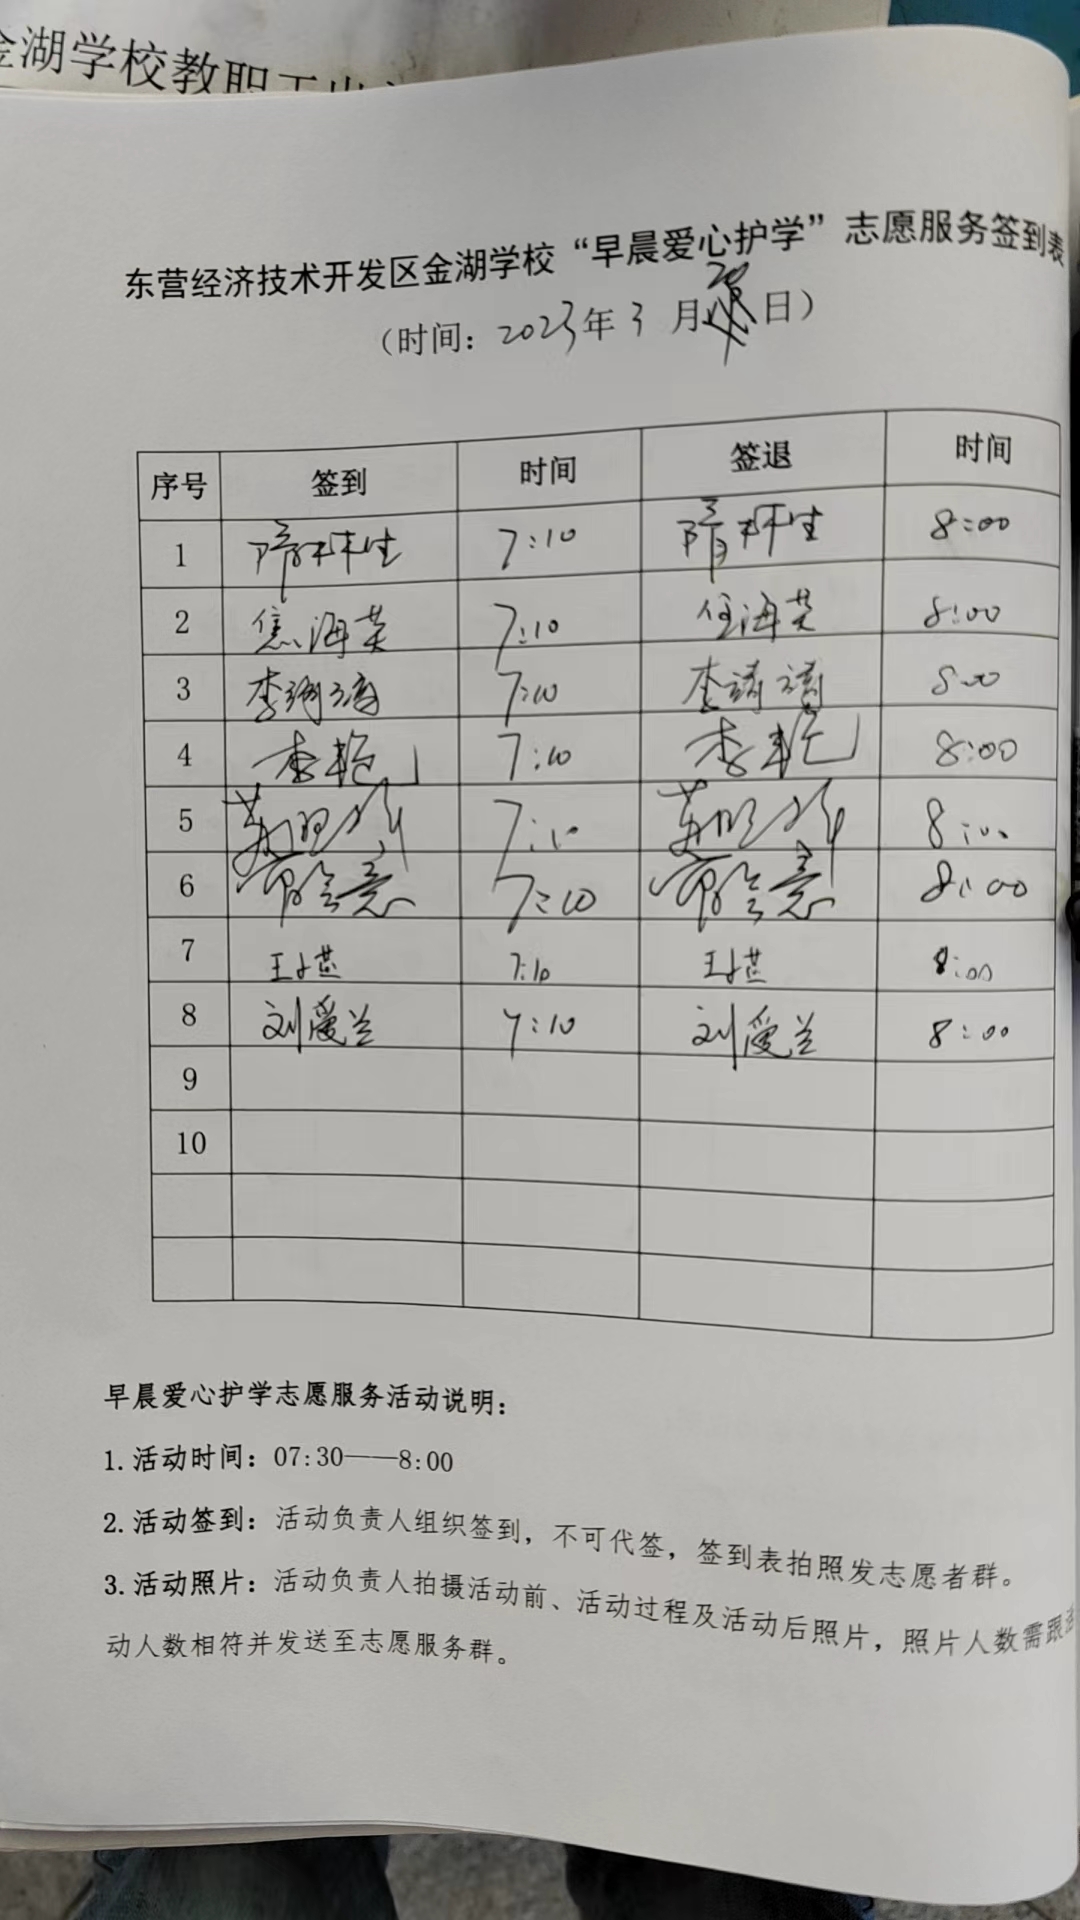 金湖学校教职工
东营经济技术开发区金湖学校“早晨爱心护学”志愿服务签到表
（时间：2023年3月20日）
序号 签到 时间 签退 时间
1 7:10 8:00
2 焦海英 7:10 焦海英 8:00
3 7:10 8:00
4 李艳 7:10 李艳 8:00
5 7:10 8:00
6 7:10 8:00
7 7:10 8:00
8 刘爱兰 7:10 刘爱兰 8:00
9
10
早晨爱心护学志愿服务活动说明：
1.活动时间：07:30——8:00
2.活动签到：活动负责人组织签到，不可代签，签到表拍照发志愿者群。
3.活动照片：活动负责人拍摄活动前、活动过程及活动后照片，照片人数需跟活
动人数相符并发送至志愿服务群。